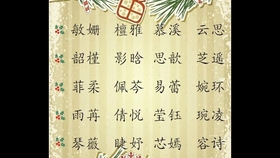 敏姗 檀雅 慕溪 云思
韶槿 影晗 思歆 芝遥
菲柔 佩芩 易蕾 婉环
雨苒 倩悦 莹钰 琬凌
琴薇 睫妤 芯嫣 容诗